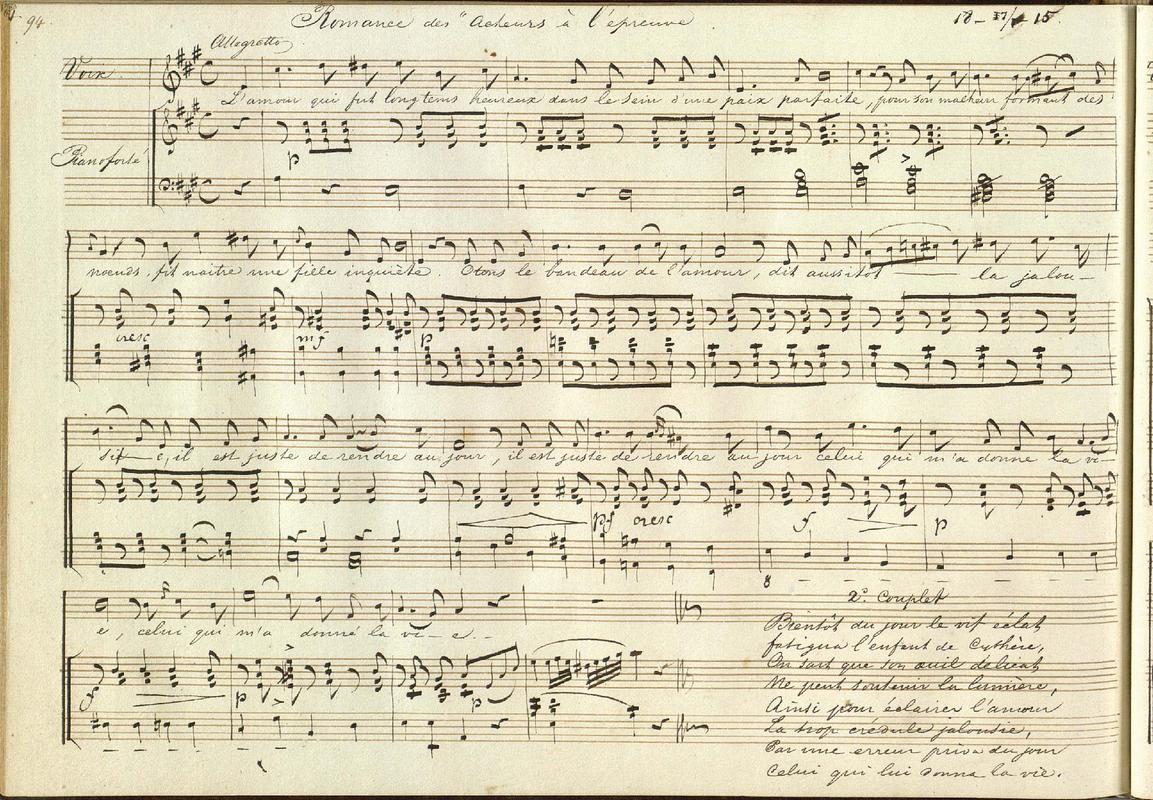 94
Romance des "Acteurs à l'épreuve
18 — 15.
Allegretto
Voix.
L'amour qui fut longtems heureux dans le sein d'une paix parfaite, pour son malheur formant des
Pianoforté
p
nœuds, fit naitre une fille inquiète. Otons le bandeau de l'amour, dit aussitôt la jalou-
cresc mf p
sie, il est juste de rendre au jour, il est juste de rendre au jour celui qui m'a donné la vi-
pf cresc f p
8
e, celui qui m'a donné la vi-e.
f p p
2e. Couplet
Bientôt du jour le vif éclat
fatigua l'enfant de Cythère,
On sait que son œuil délicat
Ne peut soutenir la lumière,
Ainsi pour éclairer l'amour
La trop crédule jalousie,
Par une erreur priva du jour
Celui qui lui donna la vie.